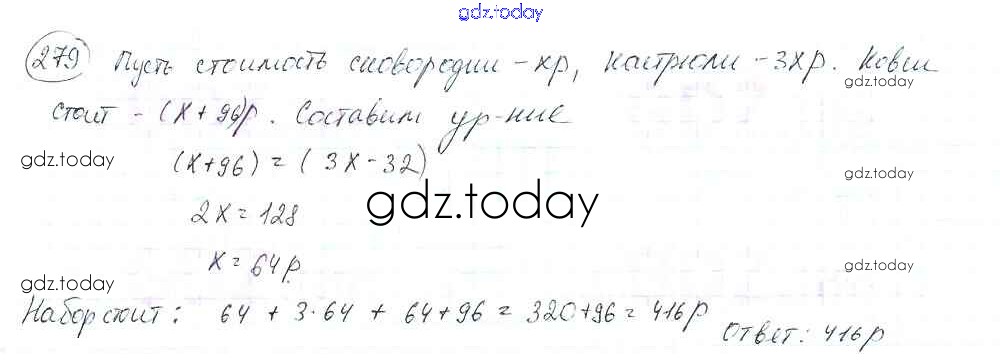 gdz.today
279 Пусть стоимость сковородии - хр, кастрюли - 3хр. Ковш
gdz.today
стоит - (х+96)р. Составим ур-ние
gdz.today
(х+96) = (3х-32)
gdz.today
2х = 128
gdz.today
х = 64р.
gdz.today
gdz.today
Набор стоит: 64 + 3·64 + 64+96 = 320+96 = 416р
Ответ: 416р